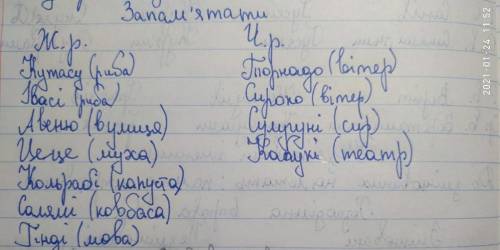 Запам'ятати
Ж.р. Ч.р.
Кутасу (риба) Торнадо (вітер)
Івасі (риба) Сироко (вітер)
Авеню (вулиця) Сулугуні (сир)
Цеце (муха) Кабукі (театр)
Кольрабі (капуста)
Салямі (ковбаса)
Гінді (мова)
2021-01-24 11:52